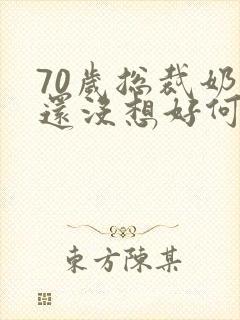 70歲總裁奶
還沒想好何
東方陳某